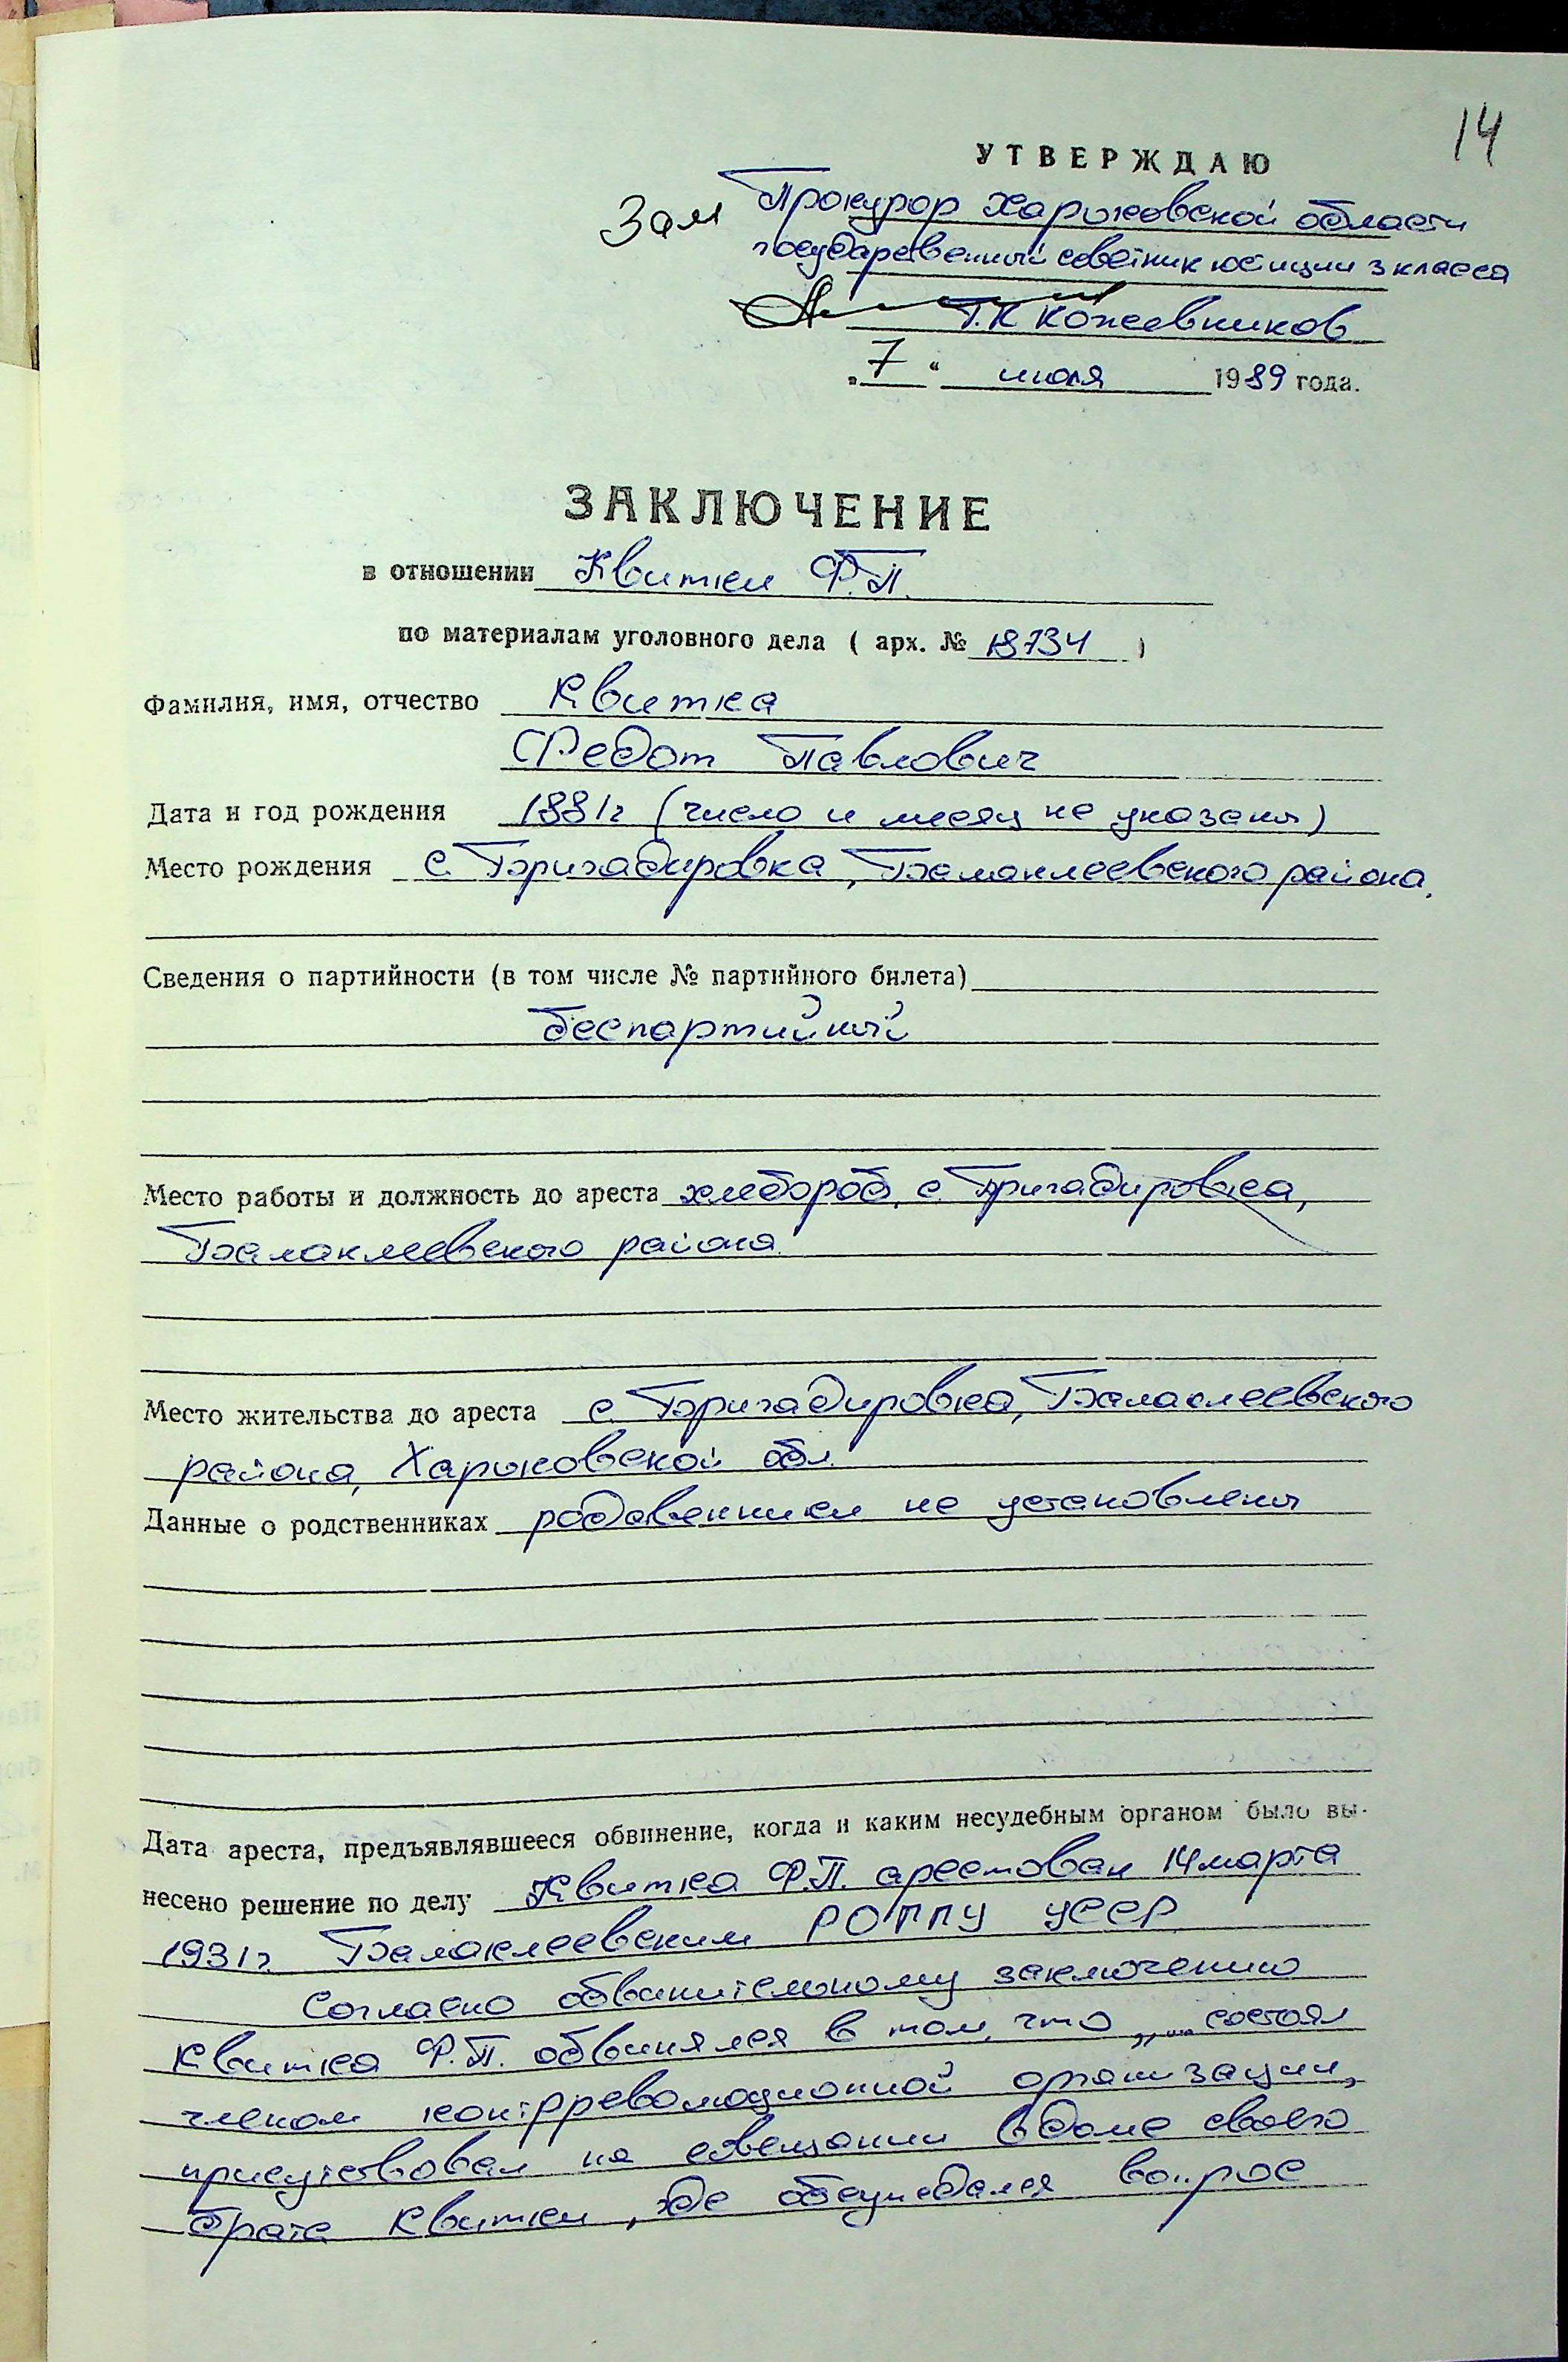 14
УТВЕРЖДАЮ
Зам Прокурор Харьковской области
государственный советник юстиции 3 класса
Г.К Кожевников
„7“ июля 1989 года.
ЗАКЛЮЧЕНИЕ
в отношении Квитки Ф.П.
по материалам уголовного дела ( арх. № 18734 )
Фамилия, имя, отчество Квитка
Федот Павлович
Дата и год рождения 1881г (число и месяц не указаны)
Место рождения с. Бригадировка, Балаклеевского района.
Сведения о партийности (в том числе № партийного билета)
беспартийный
Место работы и должность до ареста хлебороб, с. Бригадировка,
Балаклеевского района.
Место жительства до ареста с. Бригадировка, Балаклеевского
района, Харьковской обл.
Данные о родственниках родственники не установлены
Дата ареста, предъявлявшееся обвинение, когда и каким несудебным органом было вы-
несено решение по делу Квитка Ф.П. арестован 14 марта
1931г. Балаклеевским РОГПУ УССР
Согласно обвинительному заключению
Квитка Ф.П. обвинялся в том, что „... состоял
членом контрреволюционной организации,
присутствовал на совещании в доме своего
брата Квитки, где обсуждался вопрос